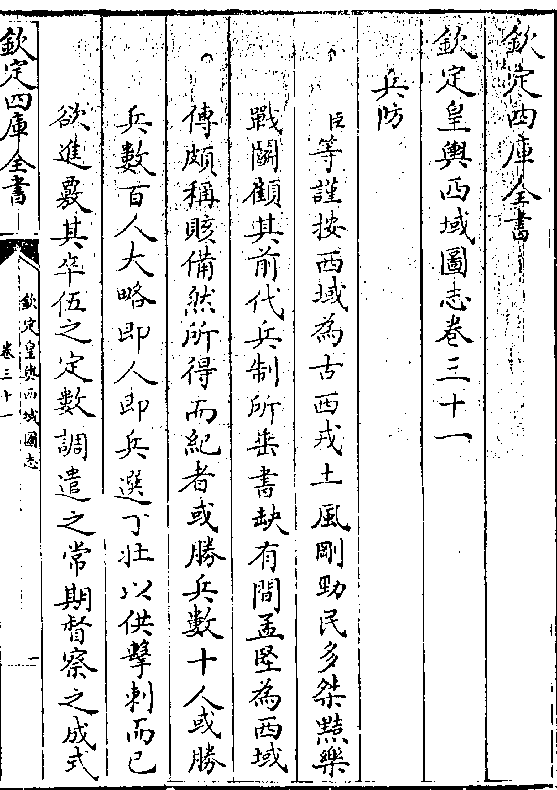 欽定四庫全書
欽定皇輿西域圖志卷三十一
兵防
臣等謹按西域為古西戎土風剛勁民多桀黠樂
戰鬭顧其前代兵制所垂書缺有間孟堅為西域
傳頗稱賅備然所得而紀者或勝兵數十人或勝
兵數百人大略即人即兵選丁壯以供擊刺而已
欲進覈其卒伍之定數調遣之常期督察之成式
欽定四庫全書
欽定皇輿西域圖志
卷三十一
一